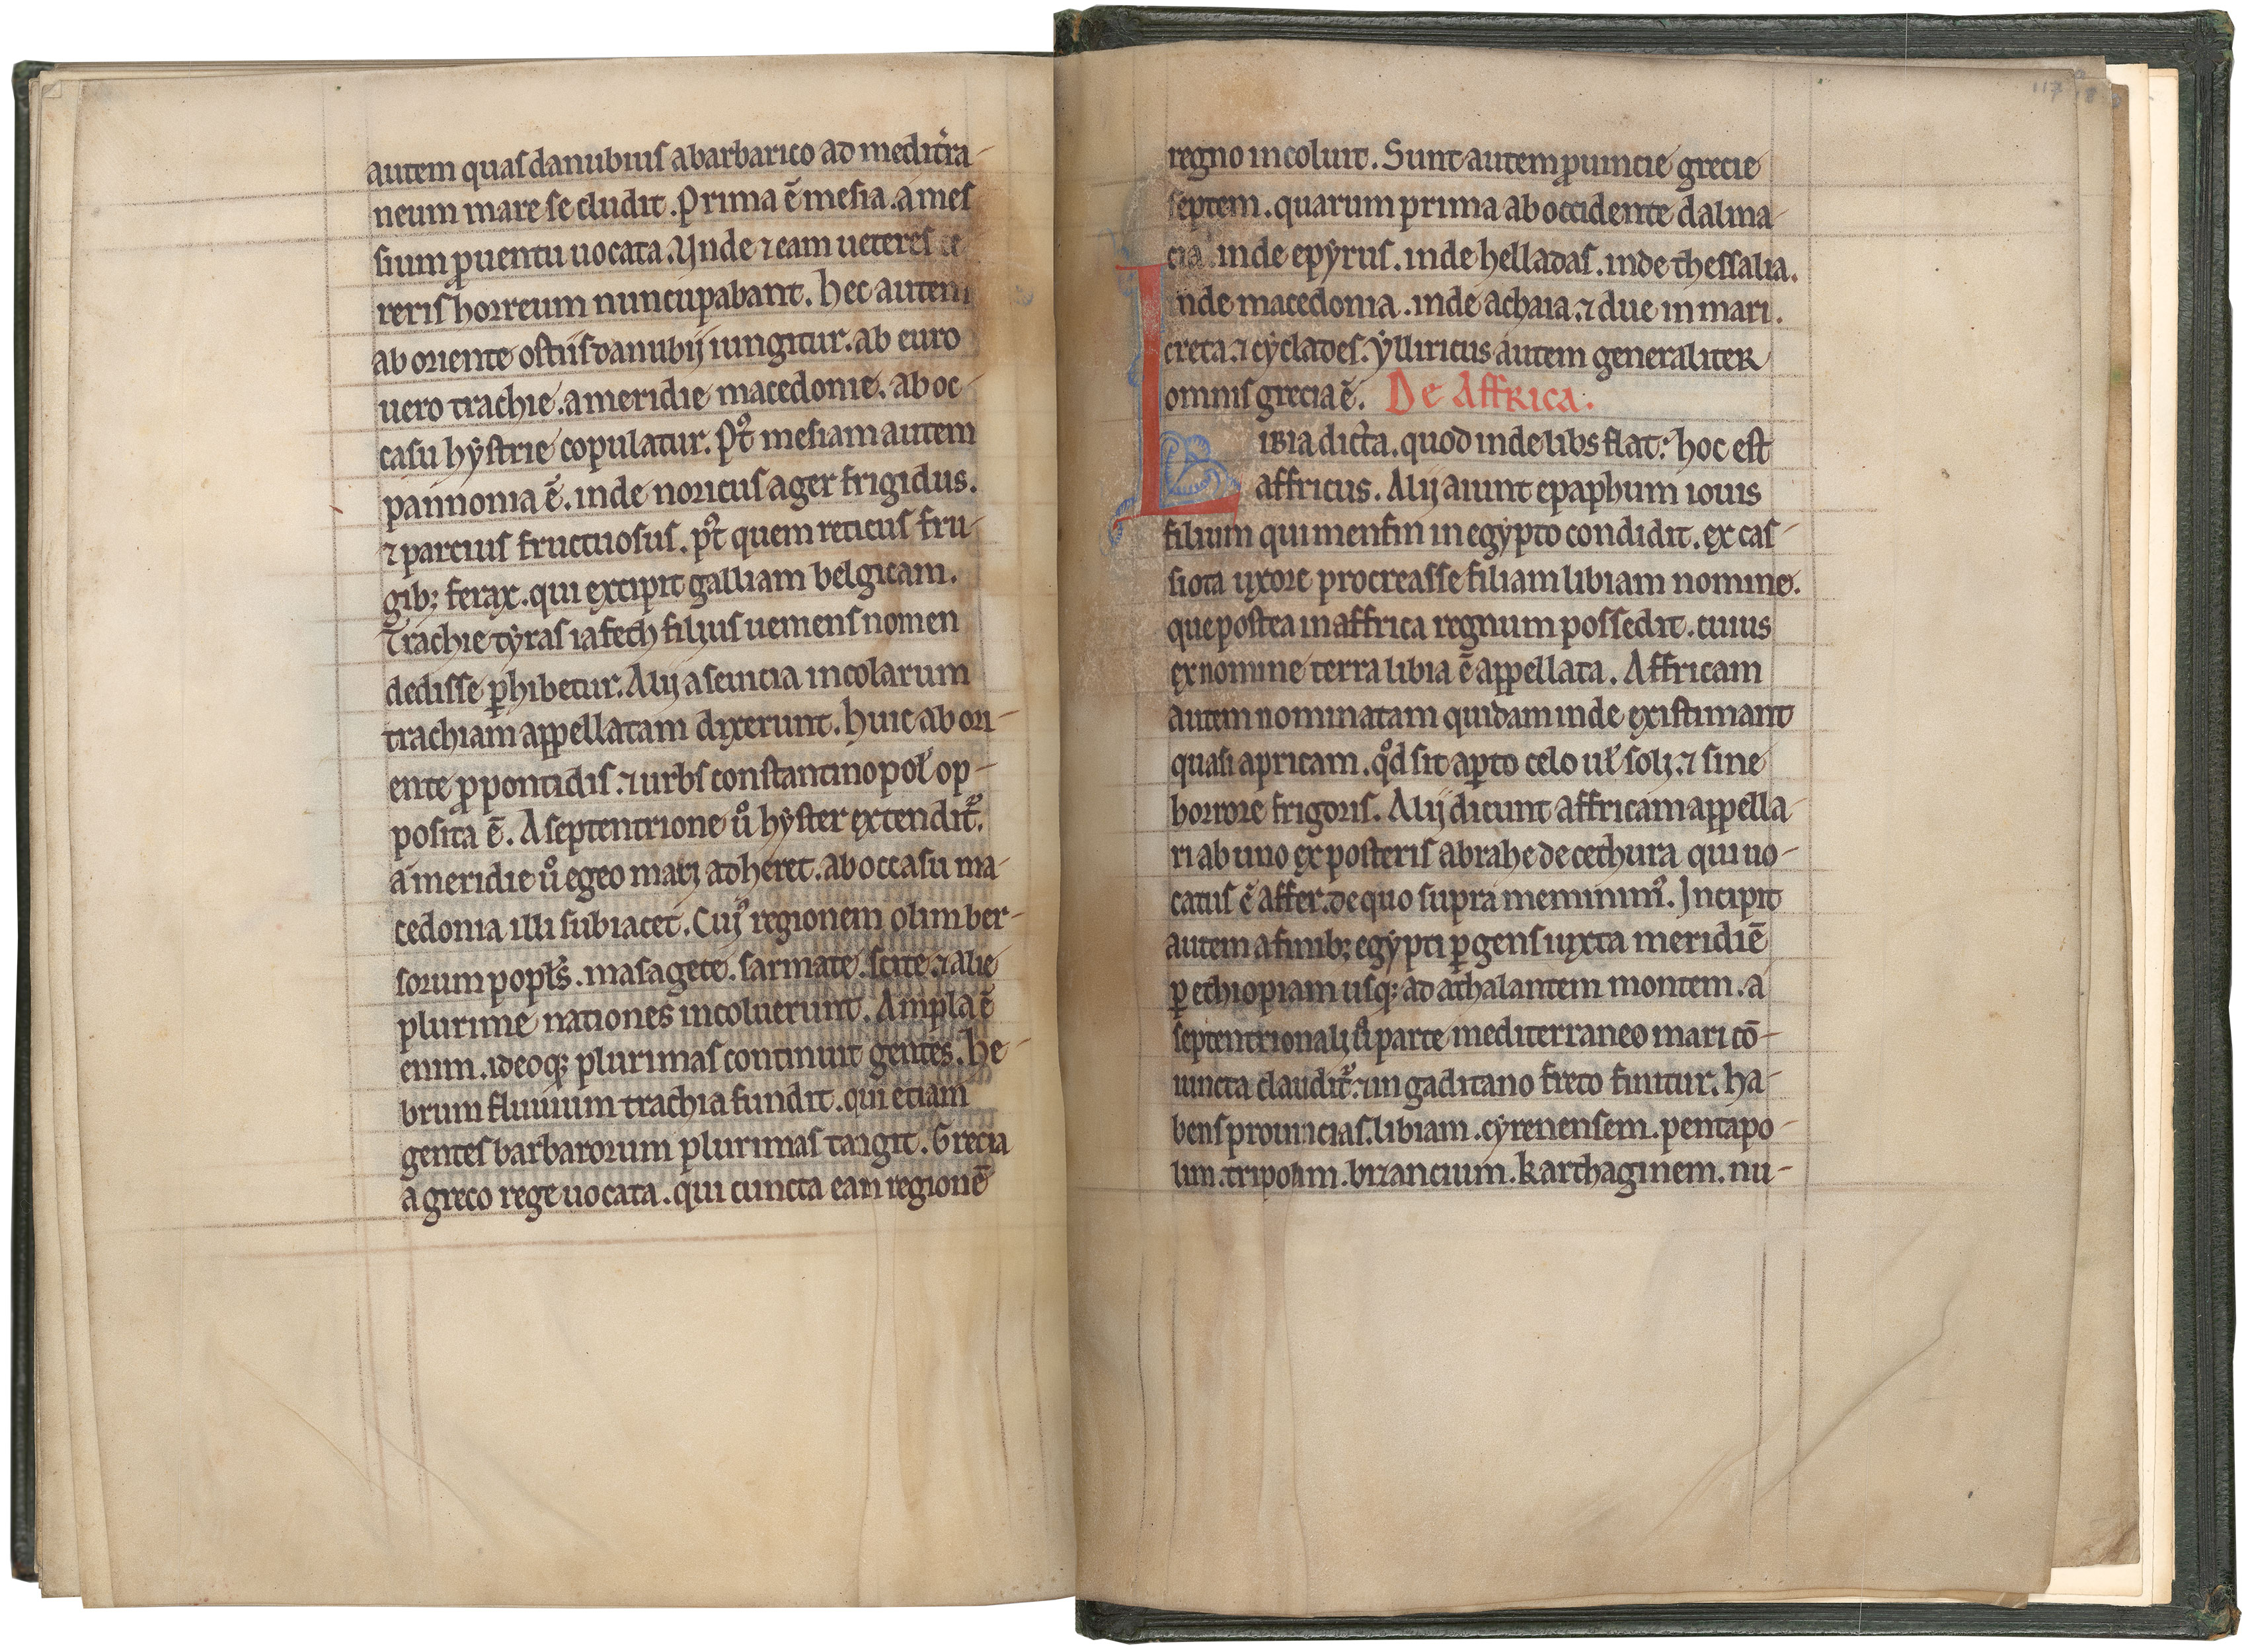 autem quas danubius a barbarico ad medit'ra-
neum mare se cludit. Prima ē mesia. a mes
sium ꝓuentu uocata. Unde ⁊ eam ueteres ce
reris horreum nuncupabant. hec autem
ab oriente ostiis danubij iungitur. ab euro
uero trachie. a meridie macedonie. ab oc-
casu hystrie copulatur. Pꝰt mesiam autem
pannonia ē. inde noricus ager frigidus.
⁊ parcius fructuosus. pꝰt quem reticus fru-
gib; ferax. qui excipit galliam belgicam.
Trachie tyras iafeth filius uemens nomen
dedisse ꝑhibetur. Alij a seuicia incolarum
trachiam appellatam dixerunt. huic ab ori-
ente ꝓpontidis. ⁊ urbs constantinopol' op-
posita ē. A septentrione ů hyster extendit᷑.
a meridie ů egeo mari adheret. ab occasu ma-
cedonia illi subiacet. Cuiꝰ regionem olim ber-
sorum popl's. masagete. sarmate. scite. ⁊ alie
plurime nationes incoluerunt. Ampla ē
enim. ideoq; plurimas continuit gentes. he-
brum fluuium trachia fundit. qui etiam
gentes barbarorum plurimas tangit. Grecia
a greco rege uocata. qui cuncta eam regionē
117
regno incoluit. Sunt autem ꝓuincie grecie
septem. quarum prima ab occidente dalma-
cia. inde epyrus. inde helladas. inde thessalia.
inde macedonia. inde achaia. ⁊ due in mari.
creta. ⁊ cyclades. Ylliricus autem generaliter
omnis grecia ē. De Affrica.
Libia dicta. quod inde libs flat. hoc est
affricus. Alij aiunt epaphum iouis
filium qui menfin in egypto condidit. ex cas-
siota uxore procreasse filiam libiam nomine.
que postea in affrica regnum possedit. cuius
ex nomine terra libia ē appellata. Affricam
autem nominatam quidam inde existimant
quasi apricam. qͦd sit aꝑto celo ul' soli. ⁊ sine
horrore frigoris. Alij dicunt affricam appella-
ri ab uno ex posteris abrahe de cethura qui uo-
catus ē affer. de quo supra meminimꝰ. Incipit
autem a finib; egypti ꝑgens iuxta meridiē
ꝑ ethiopiam usq; ad athalantem montem. a
septentrionali ů parte mediterraneo mari cō-
iuncta claudit᷑. ⁊ in gaditano freto finitur. ha-
bens prouincias. libiam. cyrenensem. pentapo-
lim. tripolim. bizancium. karthaginem. nu-